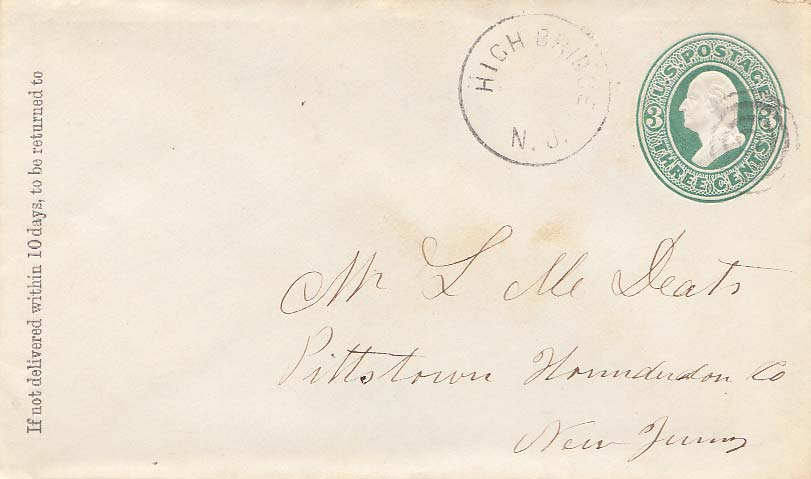 If not delivered within 10 days, to be returned to
HIGH BRIDGE
N. J.
U.S. POSTAGE
3 3
THREE CENTS
Mr L Mc Deats
Pittstown Hounderdon Co
New Jersey